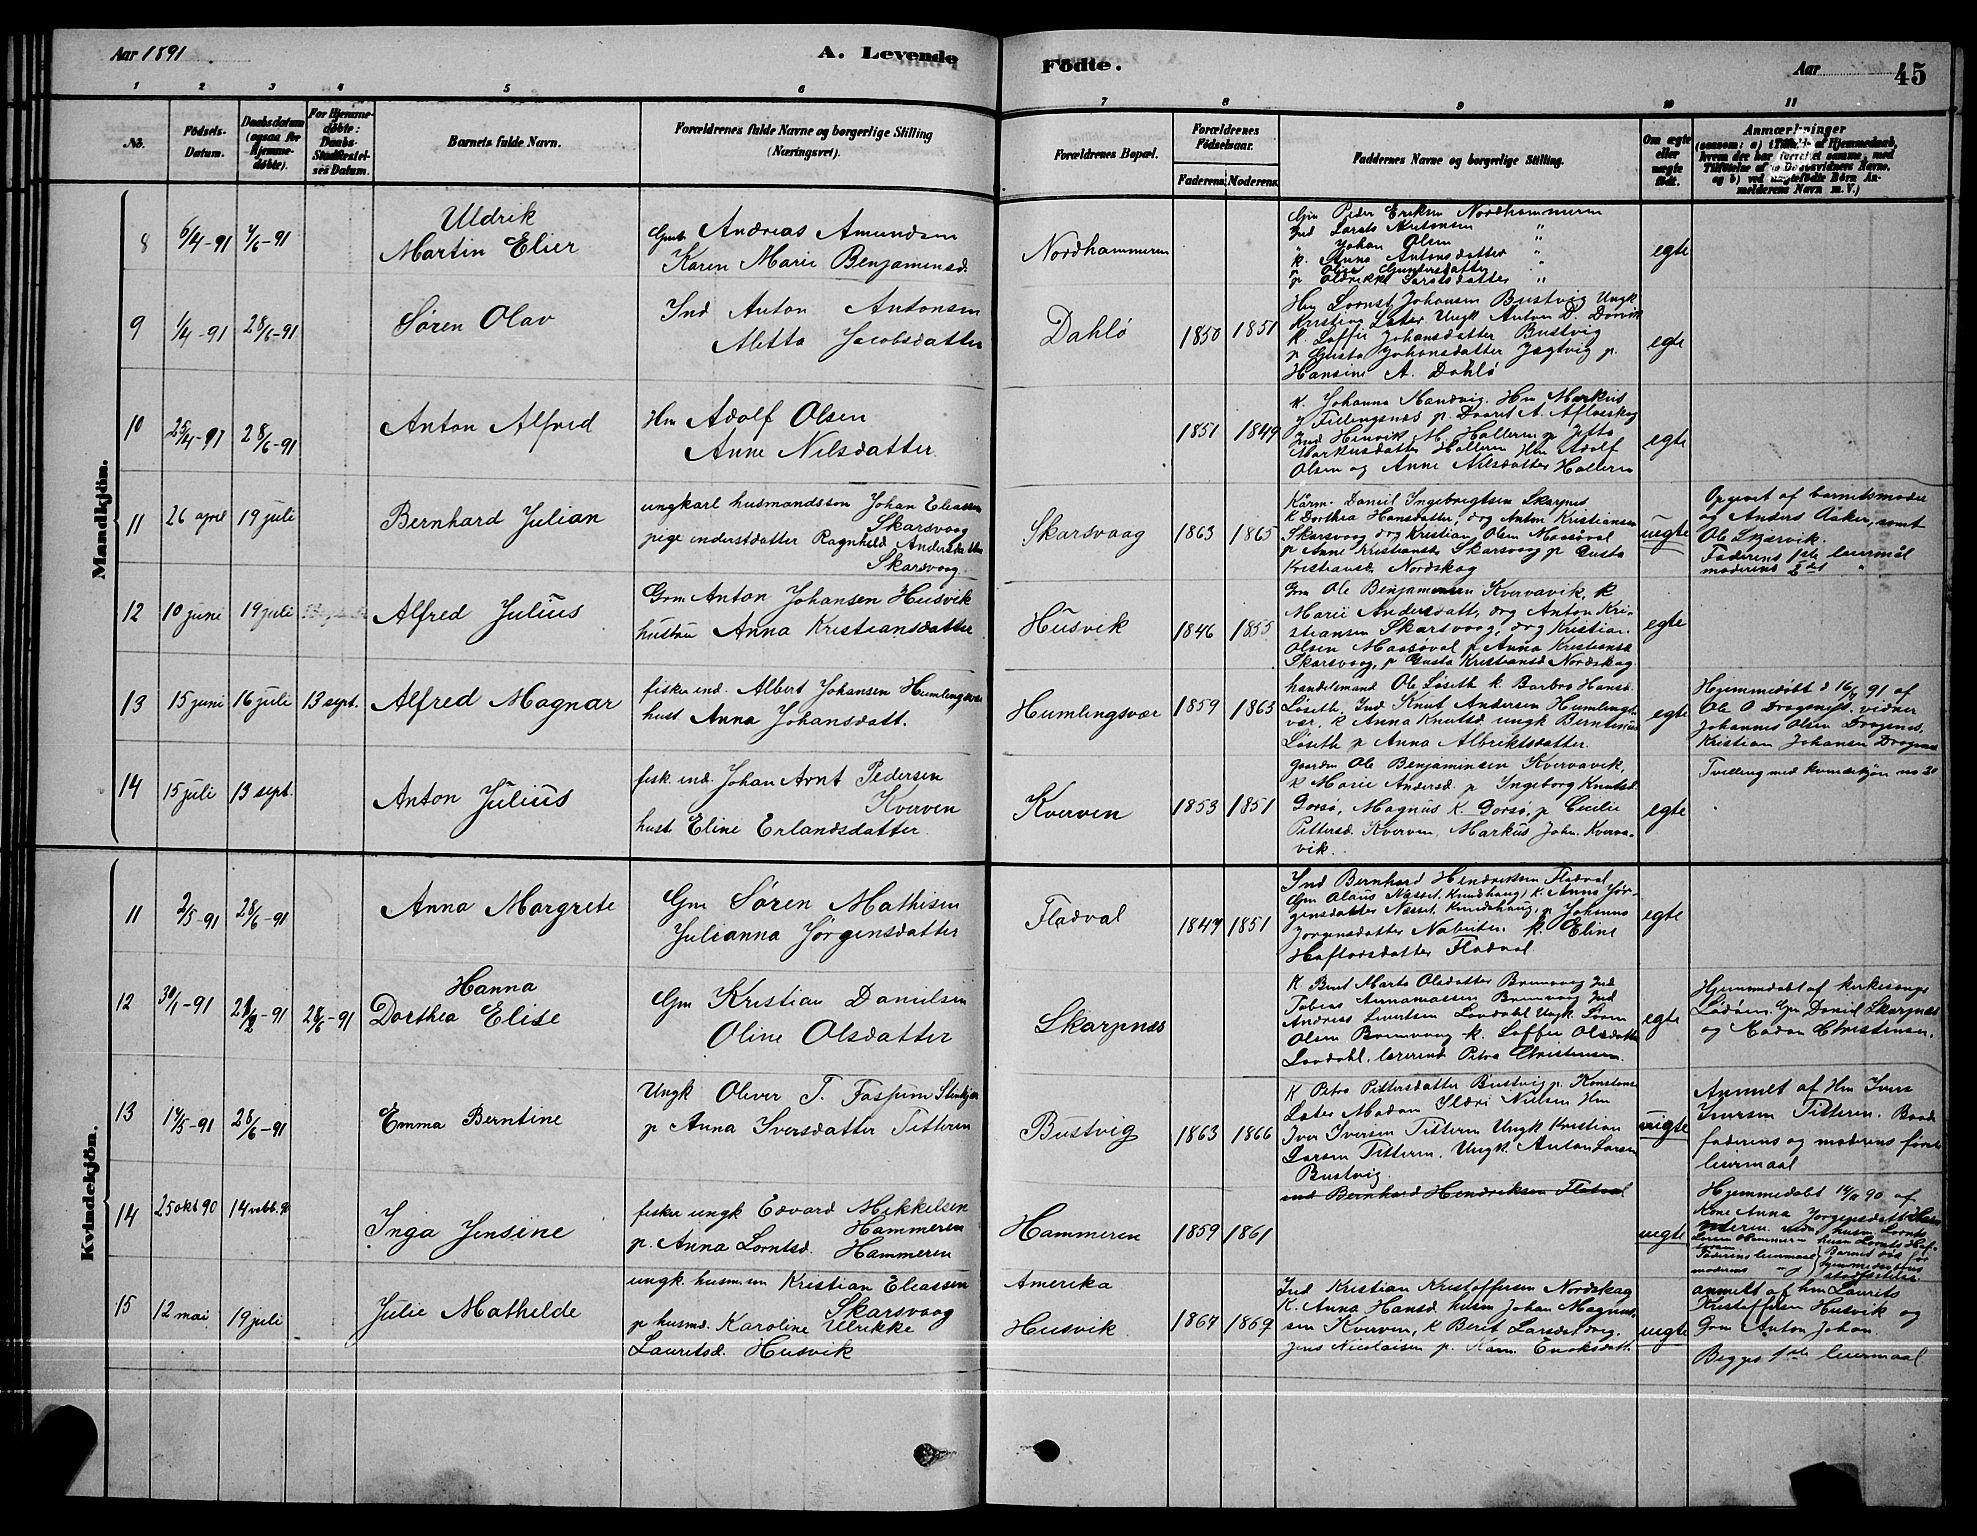 Aar 1891
A. Levende
Födte.
Aar
45
1 2 3 4 5 6 7 8 9 10 11
No.
Födsels-Datum.
Daabsdatum (ogsaa for Hjemme-döbte).
For Hjemme-döbte: Daabs-Stadfæstel-ses Datum.
Barnets fulde Navn.
Forældrenes fulde Navne og borgerlige Stilling (Næringsvei).
Forældrenes Bopæl.
Forældrenes Födselsaar.
Faderens. Moderens.
Faddernes Navne og borgerlige Stilling.
Om ægte eller uægte födt.
Anmærkninger
(saasom: a) i Tilfælde af Hjemmedaab, hvem der har forrettet samme, med Tilföielse af to Daabsvidners Navne, og b) ved uægtefödte Börn Anmelderens Navn m. V.)
Mandkjön.
8 6/4-91 7/6-91
Uldrik
Martin Elier
Gmb Andreas Amundsen
Karen Marie Benjaminsd.
Nordhammeren
Gm Peder Eriksen Nordhammeren
Ind Larsts Antonsen "
" Johan Olsen "
k. Anna Antonsdatter "
p Oline Gundersdatter "
p Oldrikke Larstsdatter "
egte
9 1/4-91 28/6-91
Søren Olav
Ind Anton Antonsen
Aletta Jacobsdatter
Dahlö
1850 1851
Hm Lornst Johansen Bustvig Ungk
Kristian Later Ungk Anton D. Dørvik
k. Loffie Johansdatter Bustvig
p Gusta Johansdatter Jægtvig p.
Hansine A. Dahlö
egte
10 25/4-91 28/6-91
Anton Alfred
Hm Adolf Olsen
Anne Nilsdatter
1851 1849
k. Johanna Mandvig. Hm Markus
Fillingsnæs p. Daaret A. Aflverskag
Ind Henvik M. Halleren p Jetta
Markusdatter Halleren Hm Adolf
Olsen og Anne Nilsdatter Halleren
egte
11 26 april 19 juli
Bernhard Julian
ungkarl husmandssön Johan Eleassen
Skarsvaag
pige inderstdatter Ragnhild Andersdatter
Skarsvaag.
Skarsvaag
1863 1865
Kårm. Daniel Ingebrigtsen Skarpnes
K Dorthea Hansdatter, drg Anton Kristiansen
Skarsvaag drg Kristian Olsen Maasöval
p Anne Kristiansdr Skarsvaag p Gusta
Kristiansd. Nordskag
uegte
Opgivet af barnetsmoder
og Anders Aaker, samt
Ole Skarvik.
Faderens 1ste leiermål
moderens 2det "
12 10 juni 19 juli
Alfred Julius
Grm Anton Johansen Husvik
hustru Anna Kristiansdatter
Husvik
1846 1855
Gm Ole Benjaminsen Kvervavik, k
Marie Andersdatter, drg Anton Kri-
stiansen Skarsvaag, drg Kristian.
Olsen Maasöval p Anna Kristiansd
Skarsvaag, p Gusta Kristiansd Nordskag
egte
13 15 juni 16 juli 13 sept.
Alfred Magnar
fisker ind. Albert Johansen Humlingsvær
hust Anna Johansdatt.
Humlingsvær
1859 1863
handelsmand Ole Løseth k. Barbro Hansd.
Løseth, Ind Knut Andersen Humlings-
vær, k Anna Knutsd. ungk Berntinius
Løseth p Anna Albriktsdatter.
egte
Hjemmedøbt d 16/7 91 af
Ole O Dragenes, vidner
Johannes Olsen Dragenes,
Kristian Johansen Dragenes
14 15 juli 13 sept.
Anton Julius
fisk. ind. Johan Arnt Pedersen
Kverven
hust Eline Erlandsdatter.
Kverven
1853 1851
gaardm Ole Benjaminsen Kvervavik,
k Marie Andersd. p Ingeborg Knutsd.
Dorsø, Magnus K. Dorsø, p Cecilie
Pettersd. Kverven, Markus John. Kverva-
vik.
egte
Tvilling med kvindekjön no 20
Kvindekjön.
11 2/5-91 28/6-91
Anna Margrete
Gm Søren Mathisen
Julianna Jørgensdatter
Fladval
1847 1851
Ind Bernhard Hendriksen Fladval
Gm Olaus Næsset Knudshaug, k. Anna Jør-
gensdatter Næsset Knudshaug, p Johanna
Jørgensdatter Nabeiten k. Eline
Haftorsdatter Fladval
egte
12 30/1-91 21/2-91 28/6-91
Hanna
Dorthea Elise
Gm Kristian Danielsen
Oline Olsdatter
Skarpnæs
K Berit Marta Olsdatter Bremvaag Ind
Tobias Annanassen Bremvaag Ind
Andreas Sivertsen Lovdahl Ungk Søren
Olsen Bremvaag k. Loffie Olsdatter
Lovdahl, lærerind Petra Christensen.
egte
Hjemmedøbt af kirkesanger
Lådøen. Gm Daniel Skarpnæs
og Madam Christensen.
13 14/5-91 28/6-91
Emma Berntine
Ungk Oliver T. Fossum Stenkjær
p Anna Iversdatter Titteren
Bustvig
1863 1866
K Petra Pittersdatter Bustvig p. Konstanse
Later Madam Nielsen Hm
Iver Iversen Titteren Ungk Kristian
Larsen Titteren. Ungk. Anton Larsen
Bustvig
ind Bernhard Hendriksen Fladval
uegte
Anmelt af Hm Ivers
Iversen Titteren. Baade
faderens og moderens første
leiermaal
14 25 okt 90 14 nobb. 90
Inga Jensine
fisker ungk Edvard Mikkelsen
Hammeren
p. Anna Lorntsd. Hammeren
Hammeren
1859 1861
uegte
Hjemmedøbt 14/11 90 af
Kone Anna Jørgensdatter Ham-
meren. vidner husm Lornts
Larsen Hammeren husm Lornts Haf-
Faderens leiermaal Barnet død før
moderens " hjemmedaabens
stadfæstelse
15 12 mai 19 juli
Julie Mathilde
ungk. husm.sn Kristian Eleassen
Skarsvaag
p husmd. Karoline Ulrikke
Lauritsd. Husvik
Amerika
Husvik.
1867 1869
Ind Kristian Kristoffersen Nordskag
K. Anna Hansd husm Johan Magnus-
sen Kverven, k Berit Larsdat drg.
Jens Nicolaisen p. Karn. Enoksdatt.
uegte
anmelt af hm Laurits
Kristoffersen Husvik og
Grm Anton Johan.
Begges 1ste leiermaal